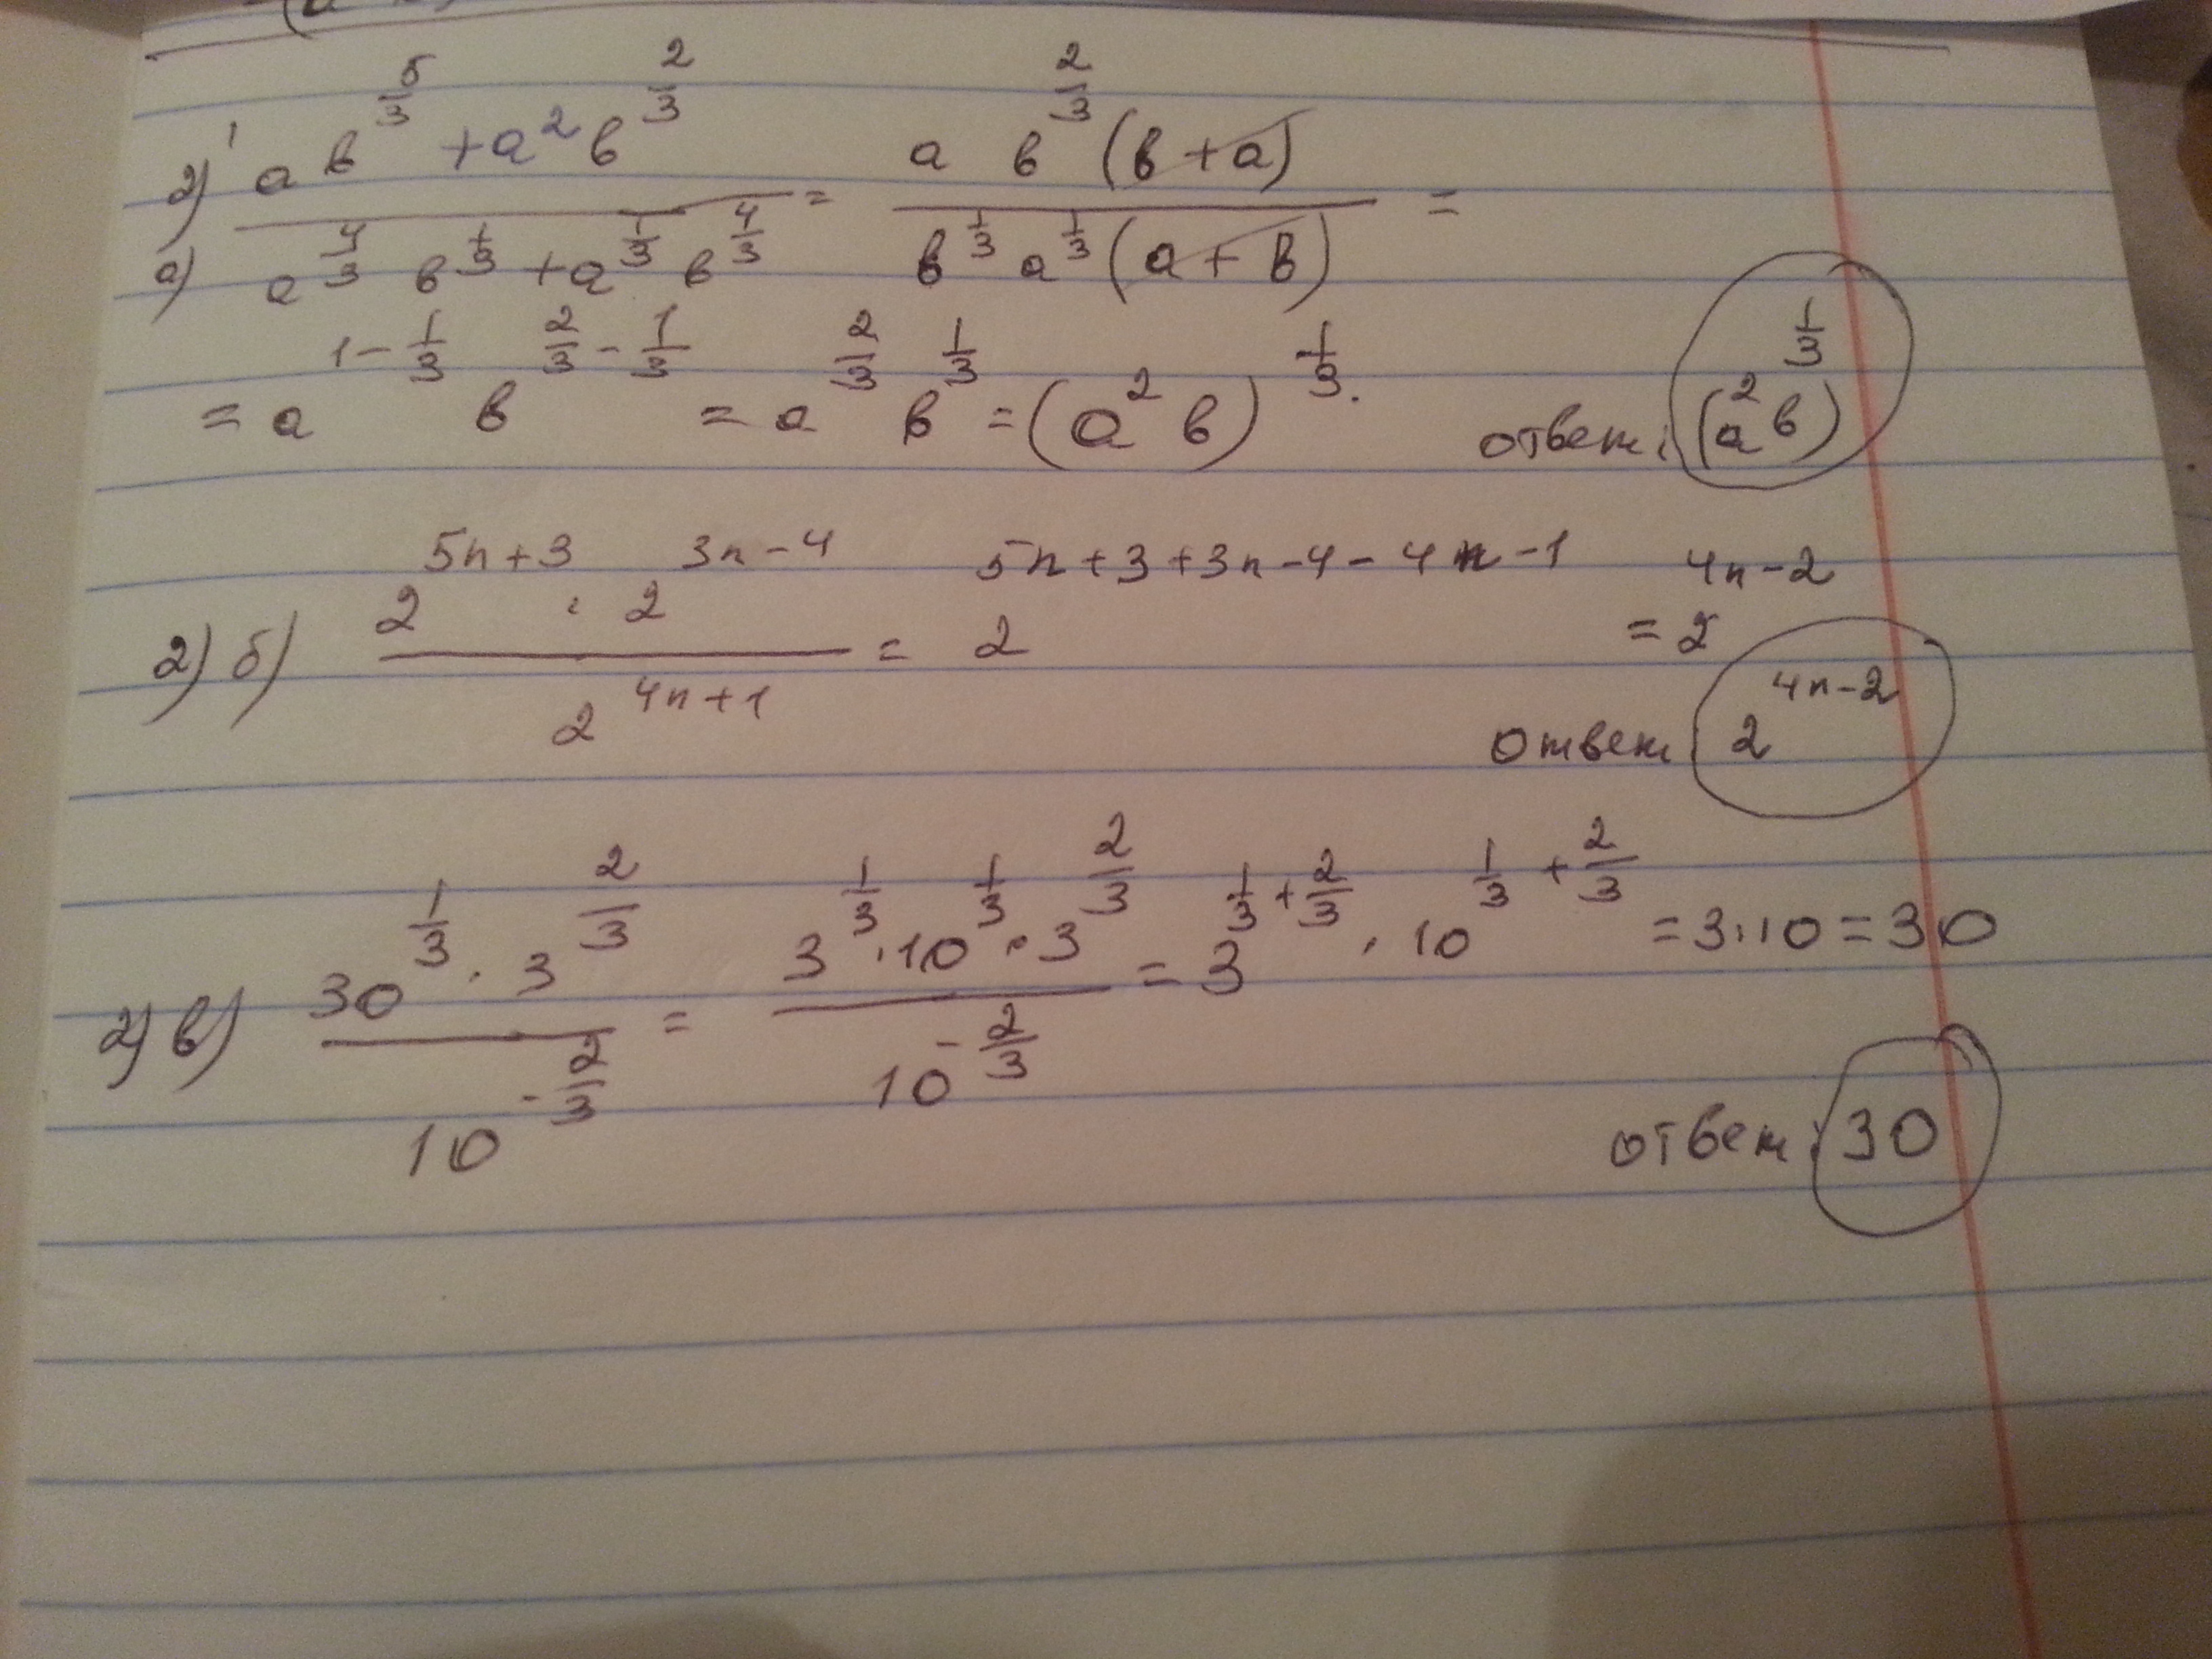 2) a) (ab^(5/3) + a²b^(2/3)) / (a^(4/3) b^(1/3) + a^(1/3) b^(4/3)) = (a b^(2/3) (b + a)) / (b^(1/3) a^(1/3) (a + b)) =
= a^(1 - 1/3) b^(2/3 - 1/3) = a^(2/3) b^(1/3) = (a²b)^(1/3). ответ: (a²b)^(1/3)
2) б) (2^(5n+3) · 2^(3n-4)) / 2^(4n+1) = 2^(5n+3+3n-4-4n-1) = 2^(4n-2)
ответ: 2^(4n-2)
2) в) (30^(1/3) · 3^(2/3)) / 10^(-2/3) = (3^(1/3) · 10^(1/3) · 3^(2/3)) / 10^(-2/3) = 3^(1/3 + 2/3) · 10^(1/3 + 2/3) = 3·10 = 30
ответ: 30